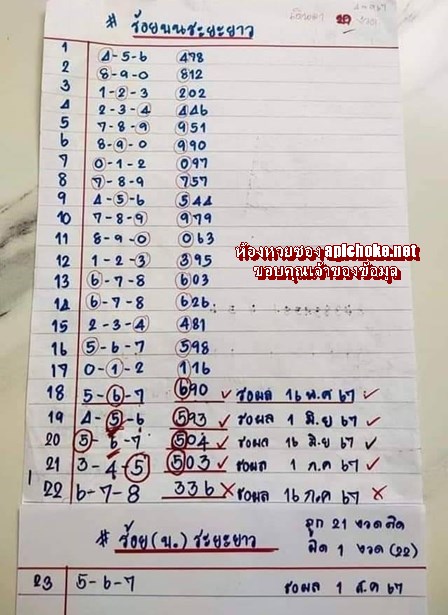 # ร้อยบนชะยะยาว
1 4-5-6 478
2 8-9-0 812
3 1-2-3 202
4 2-3-4 446
5 7-8-9 951
6 8-9-0 990
7 0-1-2 097
8 7-8-9 757
9 4-5-6 544
10 7-8-9 979
11 8-9-0 063
12 1-2-3 395
ห้องหวยซอง apichoke.net
ขอบคุณเจ้าของข้อมูล
13 6-7-8 603
14 6-7-8 626
15 2-3-4 481
16 5-6-7 598
17 0-1-2 116
18 5-6-7 690 ✓ รอผล 16 พ.ค 67 ✓
19 4-5-6 593 ✓ รอผล 1 มิ.ย 67 ✓
20 5-6-7 504 ✓ รอผล 16 มิ.ย 67 ✓
21 3-4-5 503 ✓ รอผล 1 ก.ค 67 ✓
22 6-7-8 336 ✗ รอผล 16 ก.ค 67 ✗
# ร้อย(บ.)ชะยะยาว
ถูก 21 งวดติด
ผิด 1 งวด (22)
23 5-6-7 รอผล 1 ส.ค 67